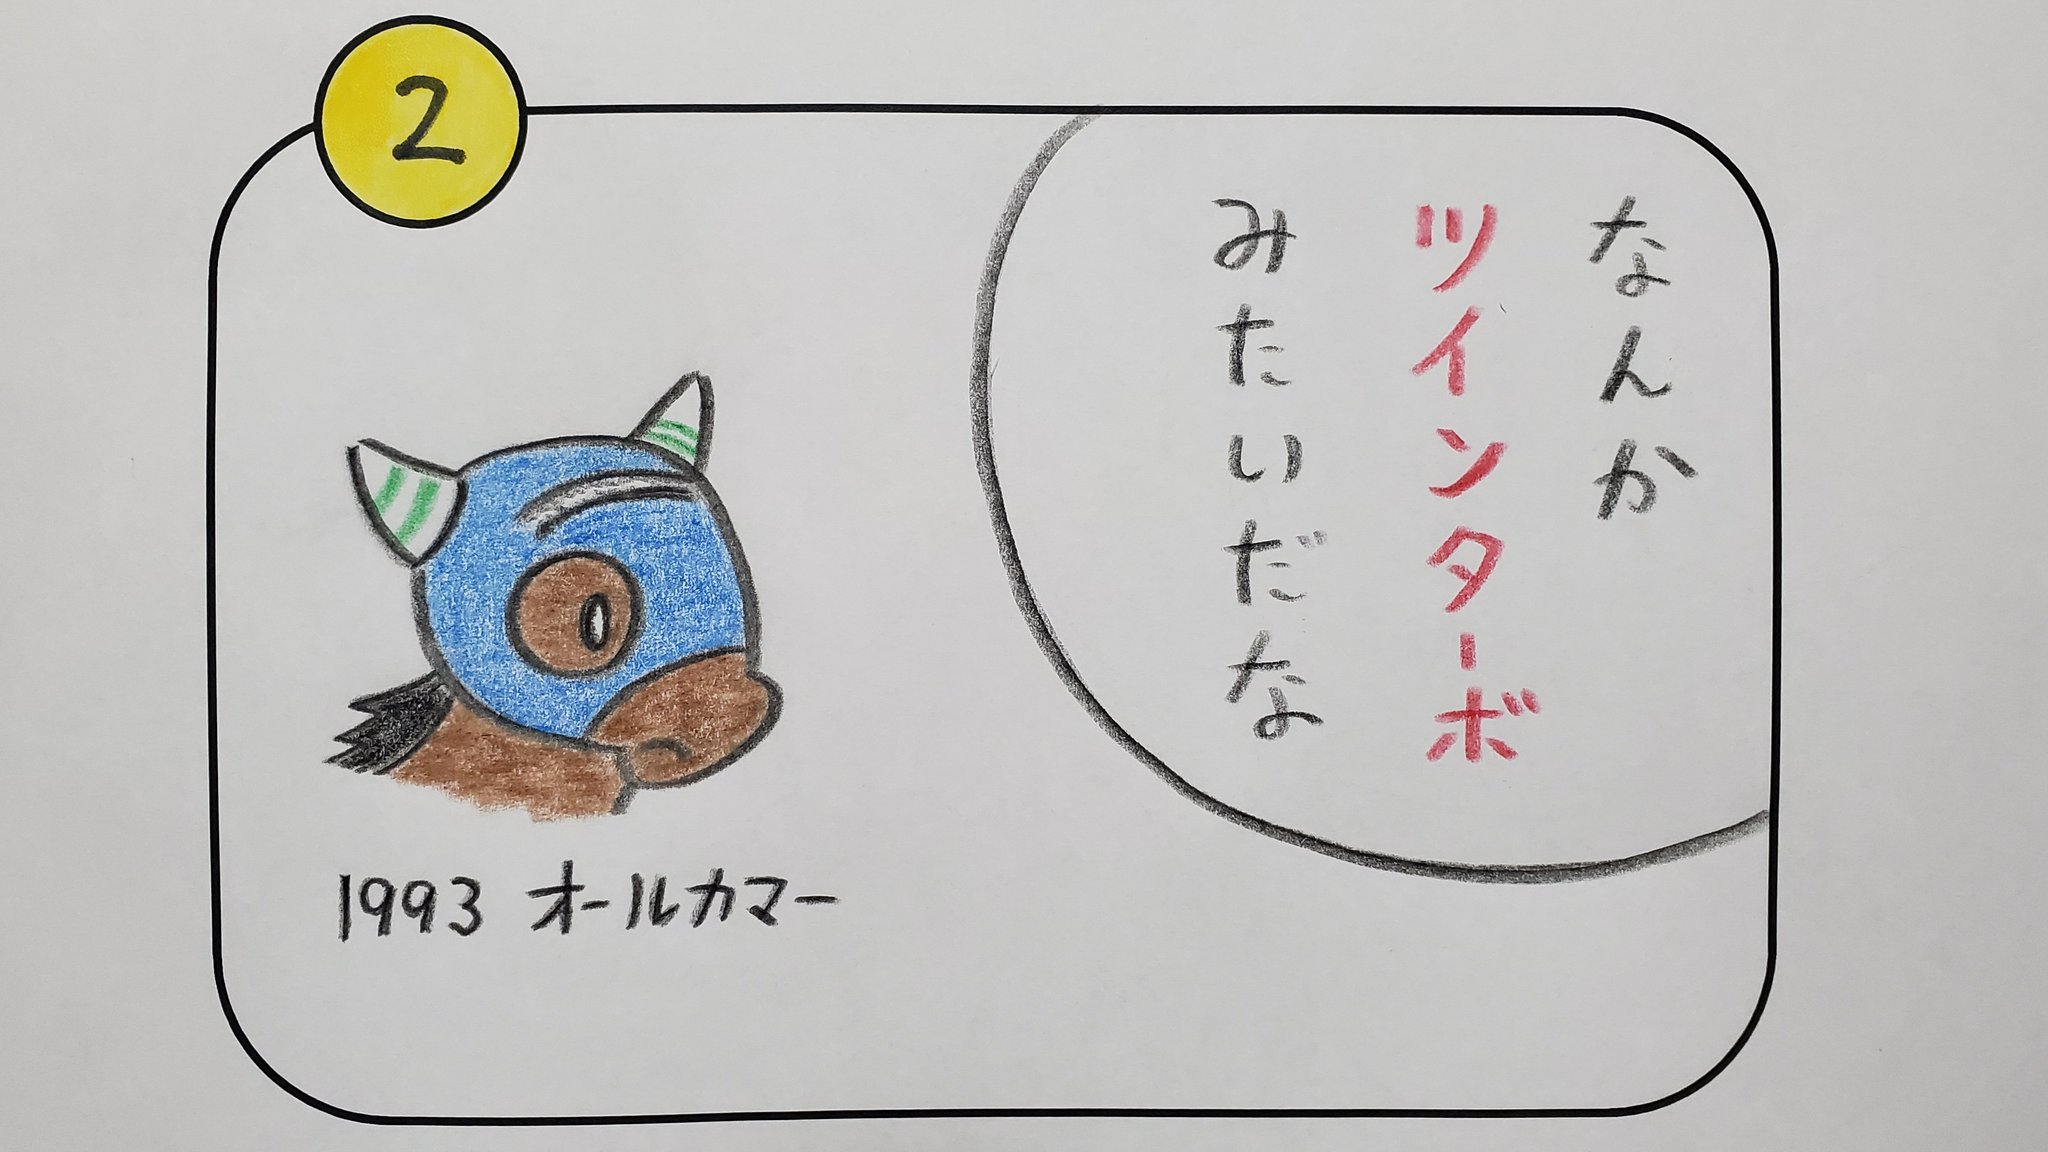 2
なんか
ツインターボ
みたいだな
1993 オールカマー